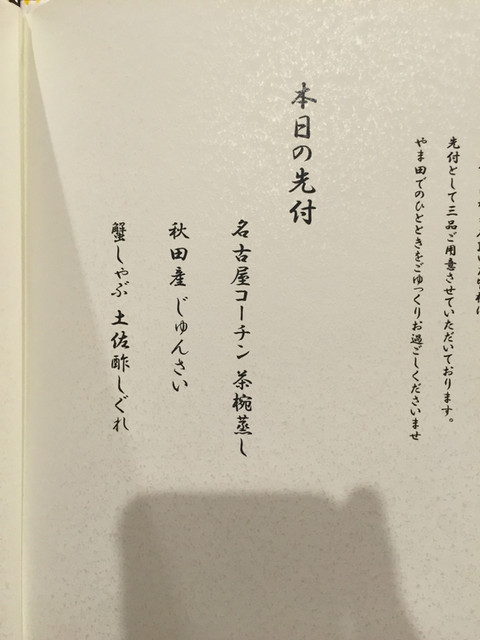 先付として三品ご用意させていただいております。
やま田でのひとときをごゆっくりお過ごしくださいませ
本日の先付
名古屋コーチン 茶椀蒸し
秋田産 じゅんさい
蟹しゃぶ 土佐酢しぐれ